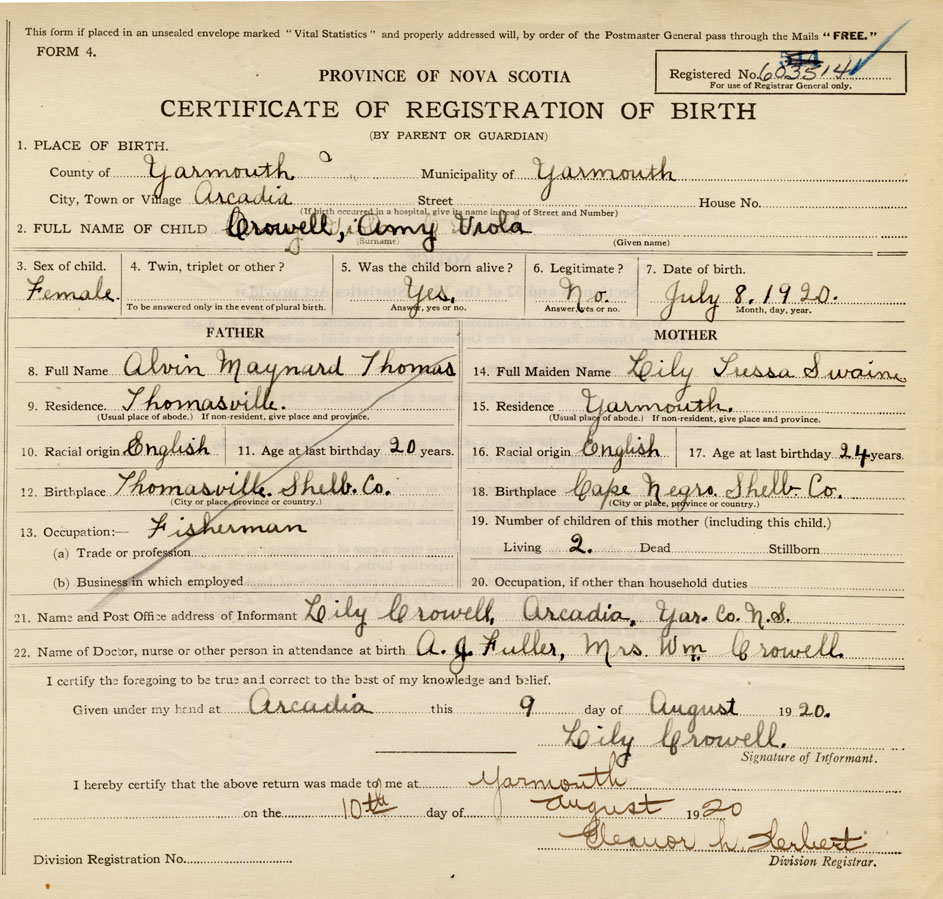 This form if placed in an unsealed envelope marked "Vital Statistics" and properly addressed will, by order of the Postmaster General pass through the Mails "FREE."
FORM 4.
PROVINCE OF NOVA SCOTIA
Registered No. 603514
For use of Registrar General only.
CERTIFICATE OF REGISTRATION OF BIRTH
(BY PARENT OR GUARDIAN)
1. PLACE OF BIRTH.
County of Yarmouth Municipality of Yarmouth
City, Town or Village Arcadia Street House No.
(If birth occurred in a hospital, give its name instead of Street and Number)
2. FULL NAME OF CHILD Crowell, Amy Viola
(Surname) (Given name)
3. Sex of child. 4. Twin, triplet or other? 5. Was the child born alive? 6. Legitimate? 7. Date of birth.
Female. Yes. No. July 8. 1920.
To be answered only in the event of plural birth. Answer, yes or no. Answer, yes or no. Month, day, year.
FATHER MOTHER
8. Full Name Alvin Maynard Thomas 14. Full Maiden Name Lily Tressa Swaine
9. Residence. Thomasville. 15. Residence Yarmouth.
(Usual place of abode.) If non-resident, give place and province. (Usual place of abode.) If non-resident, give place and province.
10. Racial origin English 11. Age at last birthday 20 years. 16. Racial origin English 17. Age at last birthday 24 years.
12. Birthplace Thomasville. Shelb. Co. 18. Birthplace Cape Negro Shelb. Co.
(City or place, province or country.) (City or place, province or country.)
13. Occupation:— Fisherman 19. Number of children of this mother (including this child.)
(a) Trade or profession Living 2. Dead Stillborn
(b) Business in which employed 20. Occupation, if other than household duties
21. Name and Post Office address of Informant Lily Crowell, Arcadia, Yar. Co. N.S.
22. Name of Doctor, nurse or other person in attendance at birth A. J. Fuller, Mrs. Wm Crowell.
I certify the foregoing to be true and correct to the best of my knowledge and belief.
Given under my hand at Arcadia this 9 day of August 1920.
Lily Crowell.
Signature of Informant.
I hereby certify that the above return was made to me at Yarmouth
on the 10th day of August 1920
Eleanor h. Herbert
Division Registrar.
Division Registration No.